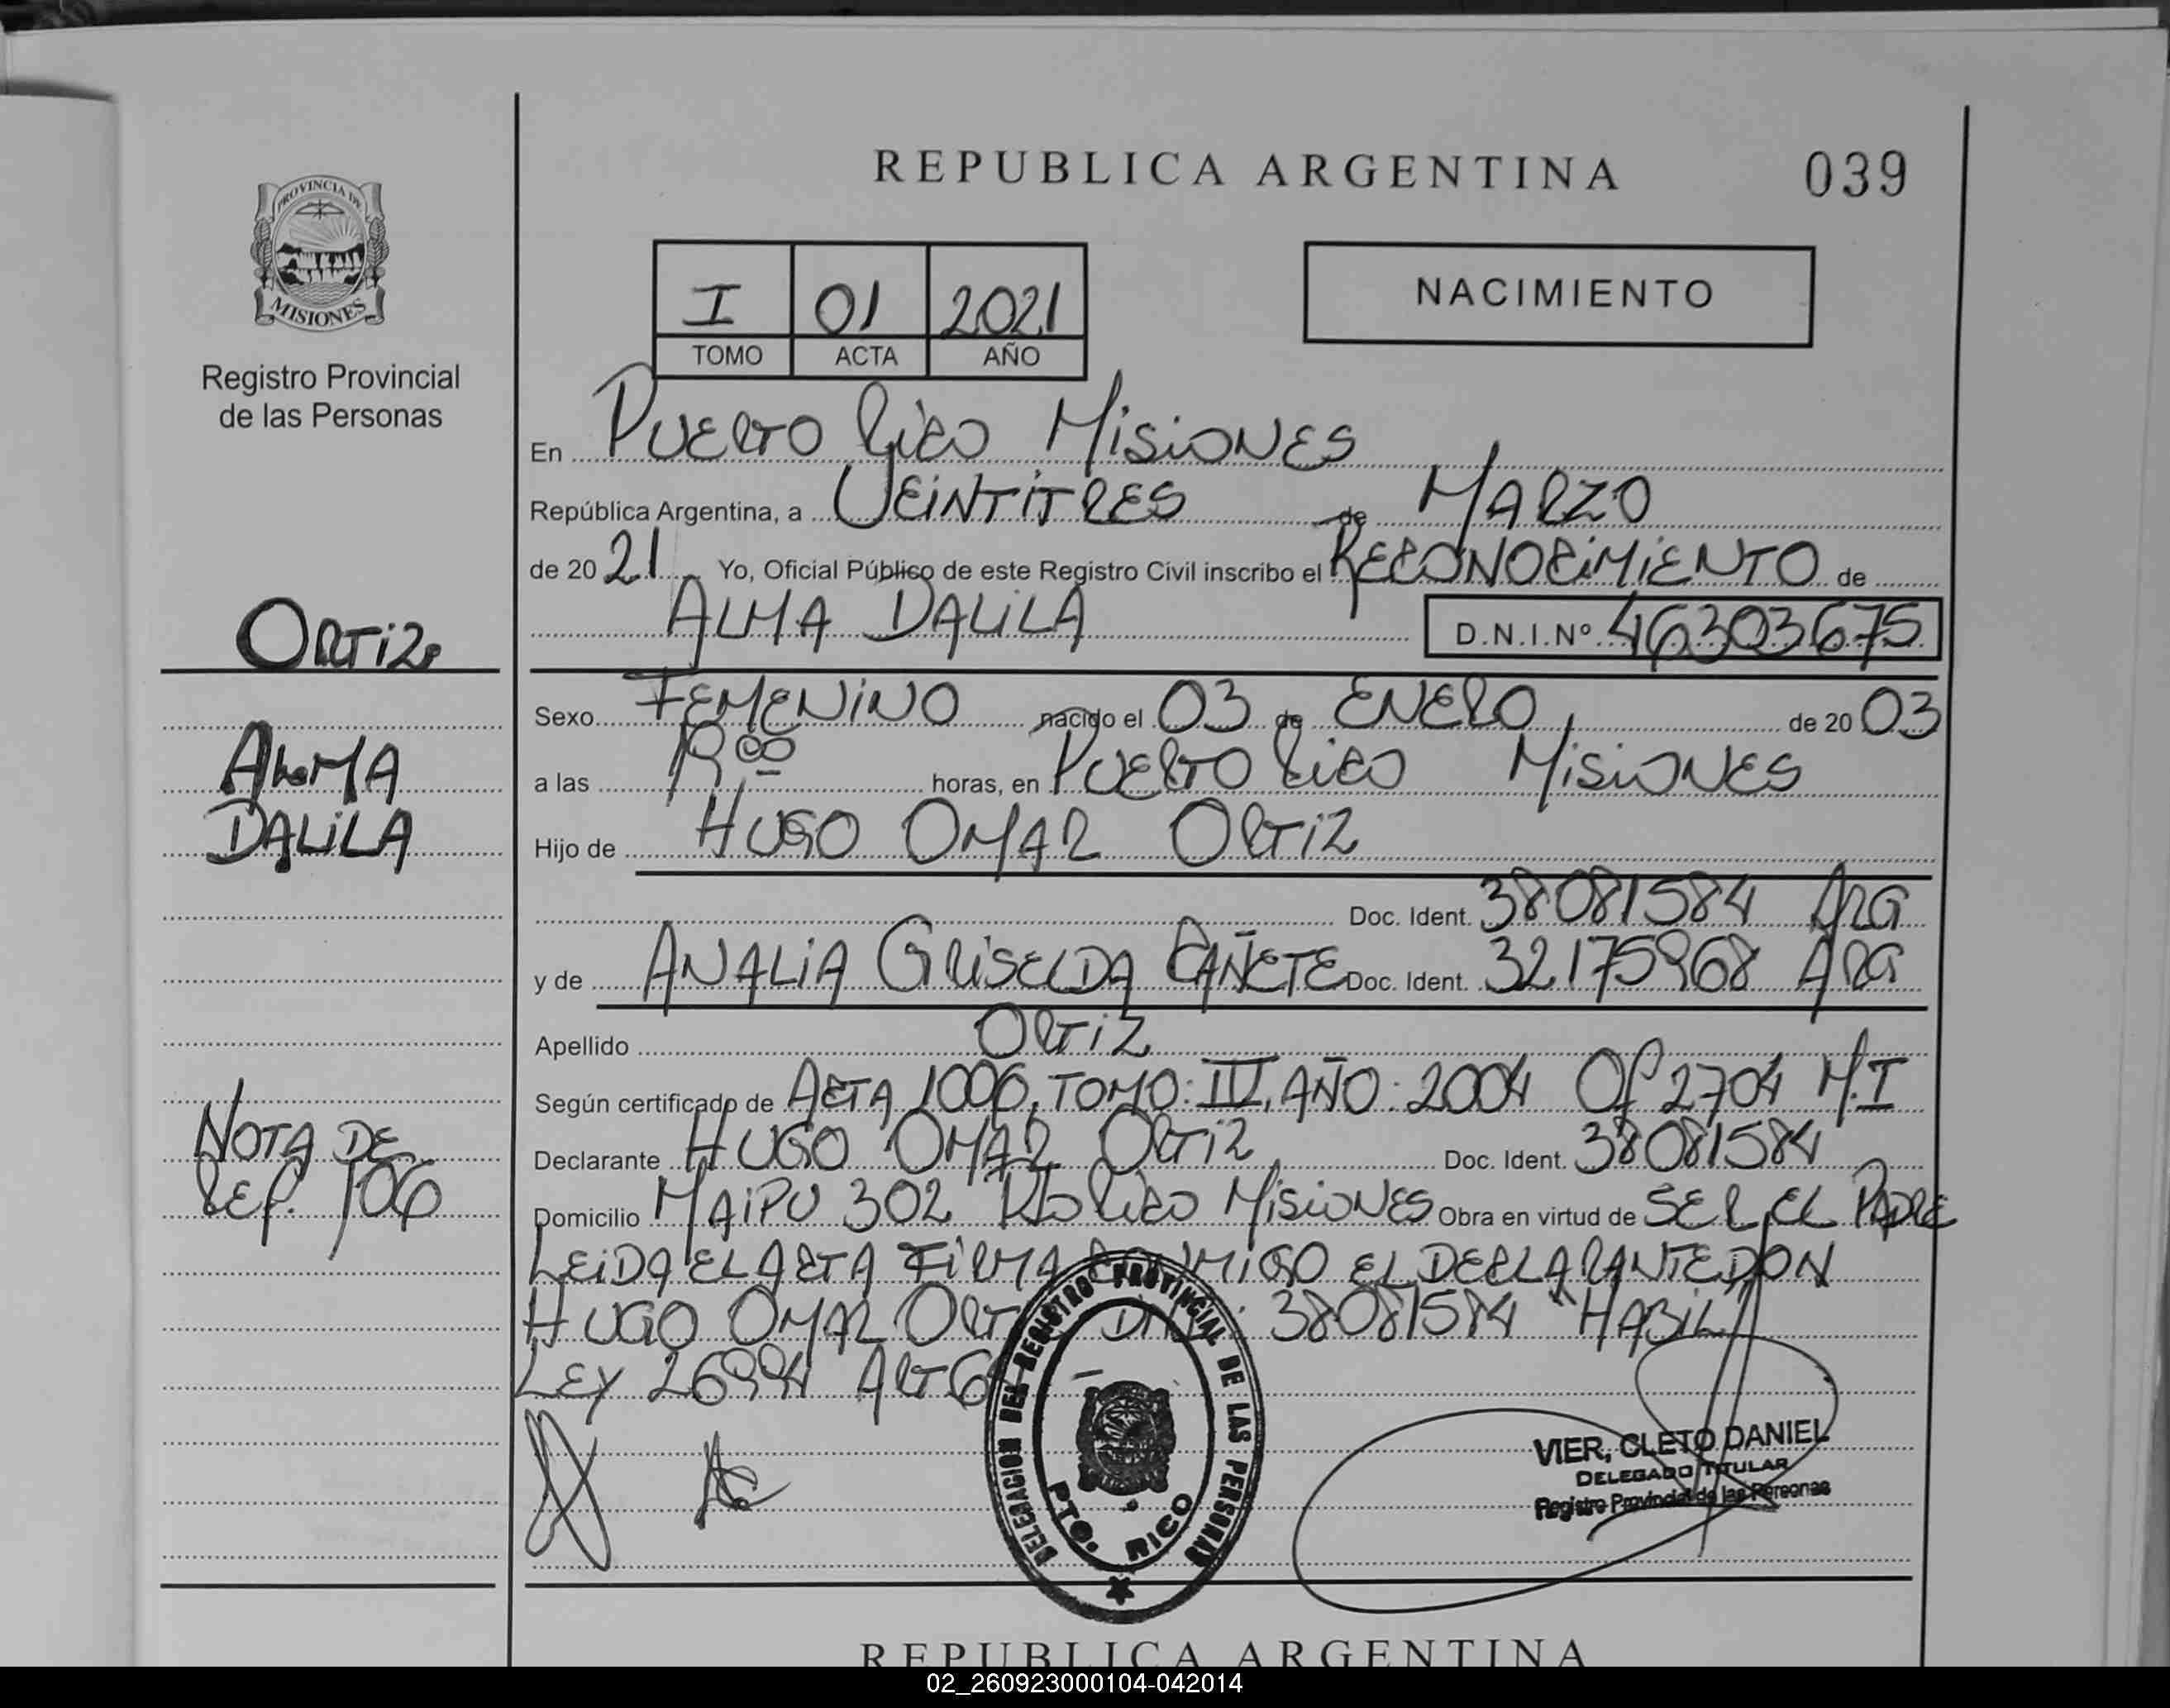 REPUBLICA ARGENTINA
039
PROVINCIA DE
MISIONES
Registro Provincial
de las Personas
I 01 2021
TOMO ACTA AÑO
NACIMIENTO
En PUERTO RICO MISIONES
República Argentina, a VEINTITRES de MARZO
de 20 21 Yo, Oficial Público de este Registro Civil inscribo el RECONOCIMIENTO de
ALMA DALILA D.N.I.Nº 46303675
ORTIZ
ALMA
DALILA
Sexo FEMENINO nacido el 03 de ENERO de 20 03
a las horas, en PUERTO RICO MISIONES
Hijo de HUGO OMAR ORTIZ
Doc. Ident. 38081584 ARG
y de ANALIA GRISELDA CAÑETE Doc. Ident. 32175968 ARG
Apellido ORTIZ
Según certificado de ACTA 1006, TOMO: IV, AÑO: 2004 Of 2704 M.I
NOTA DE
REF. 106
Declarante HUGO OMAR ORTIZ Doc. Ident. 38081584
Domicilio MAIPU 302 Pto RICO MISIONES Obra en virtud de SER EL PADRE
LEIDA EL ACTA FIRMA CONMIGO EL DECLARANTE DON
HUGO OMAR ORTIZ DNI: 38081584 "HABIL"
LEY 26994 ART 64
DELEGACION DEL REGISTRO PROVINCIAL DE LAS PERSONAS
PTO. RICO
VIER, CLETO DANIEL
DELEGADO TITULAR
Registro Provincial de las Personas
REPUBLICA ARGENTINA
02_260923000104-042014